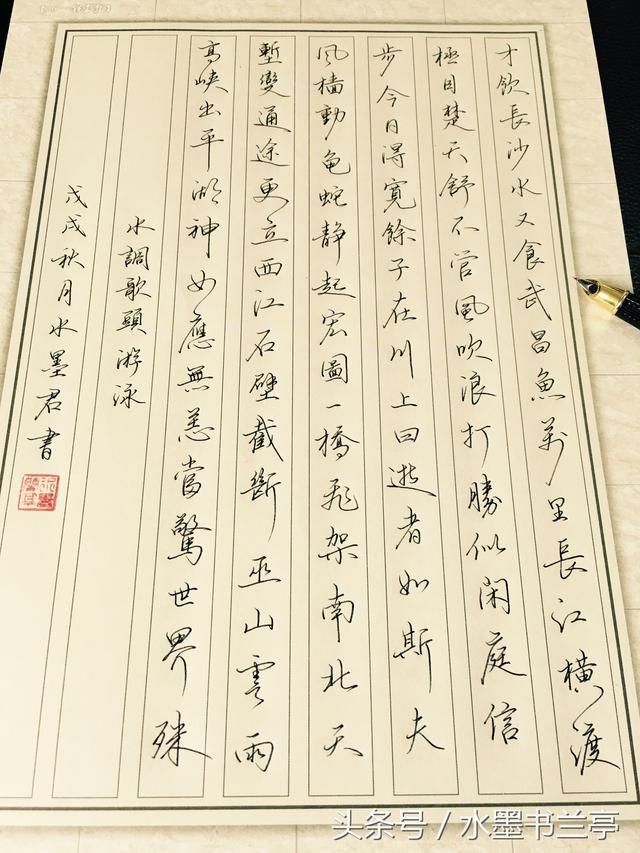 才飲長沙水又食武昌魚萬里長江橫渡
極目楚天舒不管風吹浪打勝似闲庭信
步今日得寬餘子在川上曰逝者如斯夫
風檣動龟蛇静起宏圖一橋飛架南北天
塹變通途更立西江石壁截斷巫山雲雨
高峽出平湖神女應無恙當驚世界殊
水調歌頭游泳
戊戌秋月水墨君書
头条号 / 水墨书兰亭